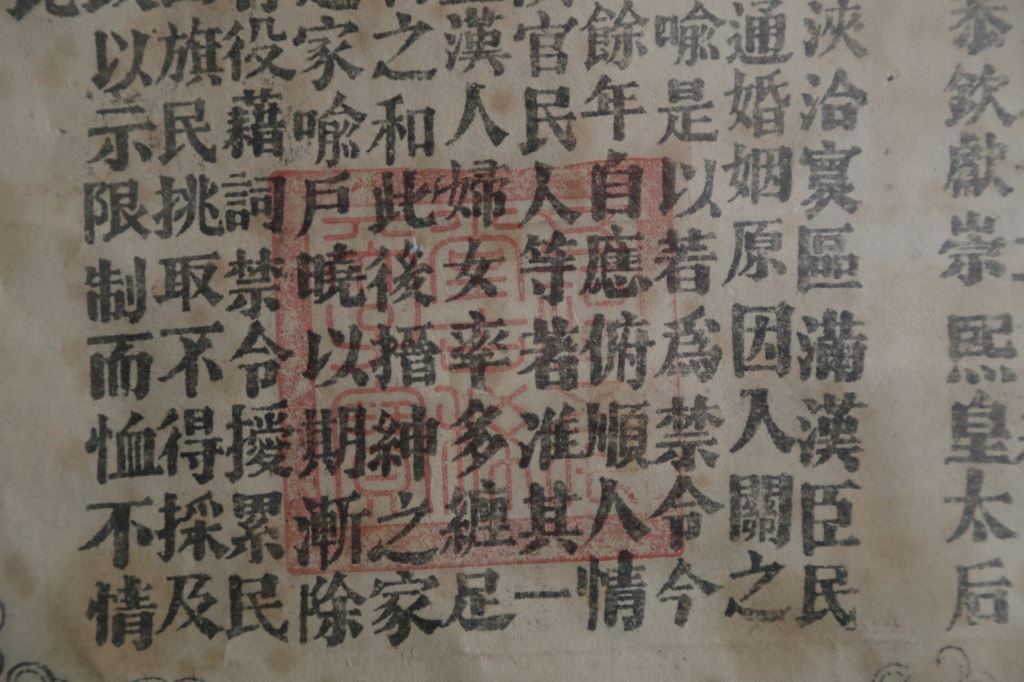 恭欽獻崇熙皇太后
浹洽寰區滿漢臣民
通婚姻原因入關之
喻是以若爲禁令今
餘年自應俯順人情
官民人等著准其一
漢人婦女率多纏足
之和此後搢紳之家
家喻戶曉以期漸除
役藉詞禁令擾累民
旗民挑取不得採及
以示限制而恤不情